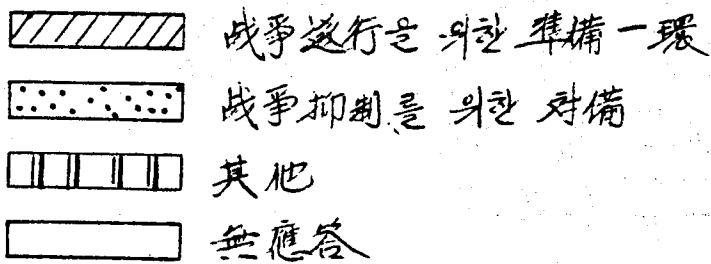 战爭遂行은 위한 準備一環
战爭抑制를 위한 対備
其他
無應答